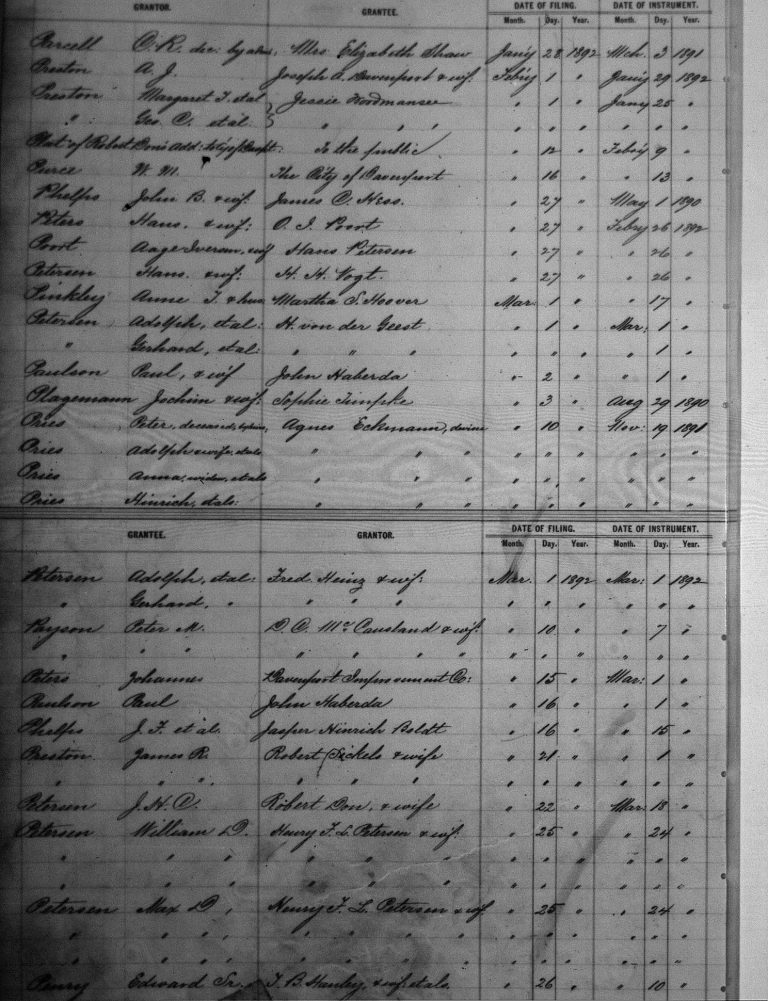 GRANTOR. GRANTEE. DATE OF FILING. DATE OF INSTRUMENT.
Month. Day. Year. Month. Day. Year.
Purcell C. R. dec. by Mrs Elizabeth Shaw Jany 28 1892 Mch. 3 1891
Preston A. J. Joseph A. Davenport & wif. Febry 1 " Jany 29 1892
Preston Margaret T. et al Jessie Woodmansee " 1 " Jany 25 "
" Geo. C. et al. " " " " " " " " "
Plat of Robert Don's Add: to City of Davpt: To the public " 12 " Febry 9 "
Pierce W. M. The City of Davenport " 16 " " 13 "
Phelps John B. & wif. James C. Hess. " 27 " May 1 1890
Peters Hans. & wif: O. I. Poort " 27 " Febry 26 1892
Poort Aage Iversen, wif Hans Petersen " 27 " " 26 "
Petersen Hans. & wif: H. H. Vogt. " 27 " " 26 "
Pinkley Anne T. & hus Martha S. Hoover Mar. 1 " " 17 "
Petersen Adolph, et al: H. von der Geest " 1 " Mar: 1 "
" Gerhard, et al: " " " " " " " 1 "
Paulson Paul, & wif John Haberda " 2 " " 1 "
Plagemann Jochim & wif: Sophie Timpke " 3 " Aug 29 1890
Pries Peter, deceased, Agnes Eckmann, " 10 " Nov. 19 1891
Pries Adolph & wife, et als " " " " " " " " "
Pries Anna, widow, et als " " " " " " " " "
Pries Hinrich, et als: " " " " " " " " "
GRANTEE. GRANTOR. DATE OF FILING. DATE OF INSTRUMENT.
Month. Day. Year. Month. Day. Year.
Petersen Adolph, et al: Fred Heinz & wif: Mar. 1 1892 Mar: 1 1892
" Gerhard. " " " " " " " " " " "
Payson Peter M. D. C. McCausland & wif: " 10 " " 7 "
" " " " " " " " " " " "
Peters Johannes Davenport Improvement Co: " 15 " Mar: 1 "
Paulson Paul John Haberda " 16 " " 1 "
Phelps J. F. et al. Jasper Hinrich Boldt " 16 " " 15 "
Preston James R. Robert Sickels & wife " 21 " " 1 "
" " " " " " " " " " " "
Petersen J. H. C. Robert Don, & wife " 22 " Mar: 18 "
Petersen William D. Henry F. L. Petersen & wif: " 25 " " 24 "
" " " " " " " " " " " "
" " " " " " " " " " " "
Petersen Max D, Henry F. L. Petersen & wif " 25 " " 24 "
" " " " " " " " " " " "
" " " " " " " " " " " "
Penry Edward Sr. T. B. Hanley, & wif. et als. " 26 " " 10 "